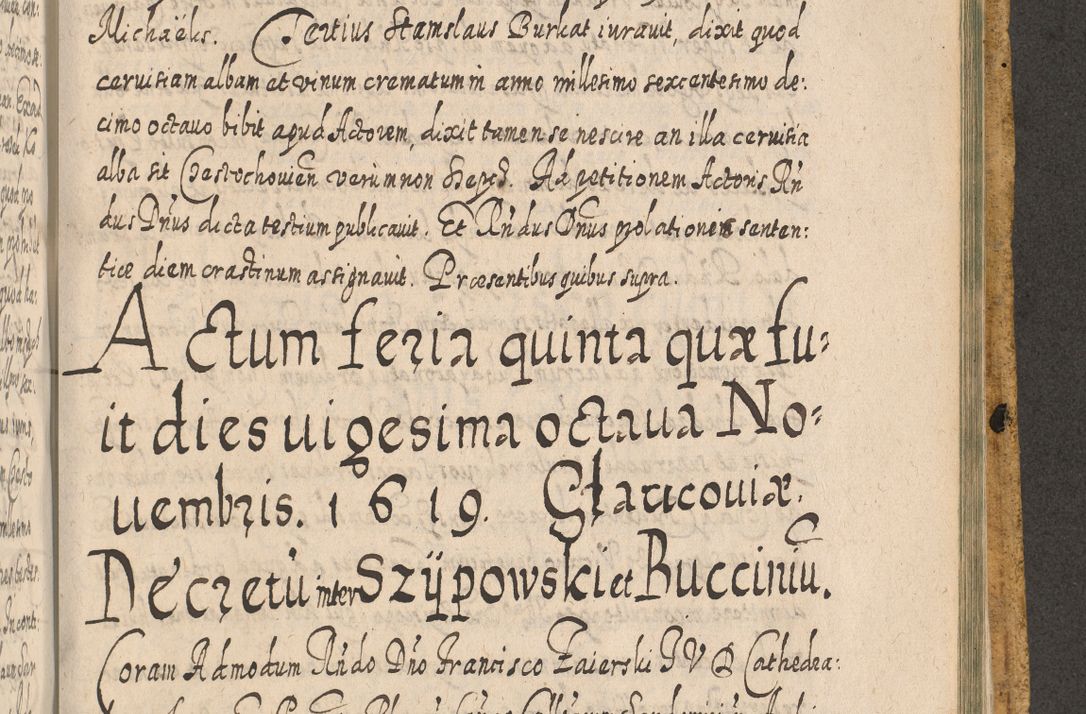 Michaëlis. Tertius Stanislaus Burkat iurauit, dixit quod
ceruisiam albam et vinum crematum in anno millesimo sexcentesimo de:
cimo octauo bibit apud Actorem, dixit tamen se nescire an illa ceruisia
alba sit Częstochouien̄ verùm non Siepcz̄. Ad petitionem Actoris Rn̄
dus Dn̄us dicta testium publicauit. Et Rn̄dus Dn̄us prolationem senten:
tiæ diem crastinum assignauit. Præsentibus quibus supra.
Actum feria quinta quæ fu:
it dies uigesima octaua No:
uembris. 1619. Cracouiæ.
Decretū inter Szÿpowski et Bucciniū.
Coram Admodum Rn̄do Dn̄o Francisco Zaierski I V D Cathedra: